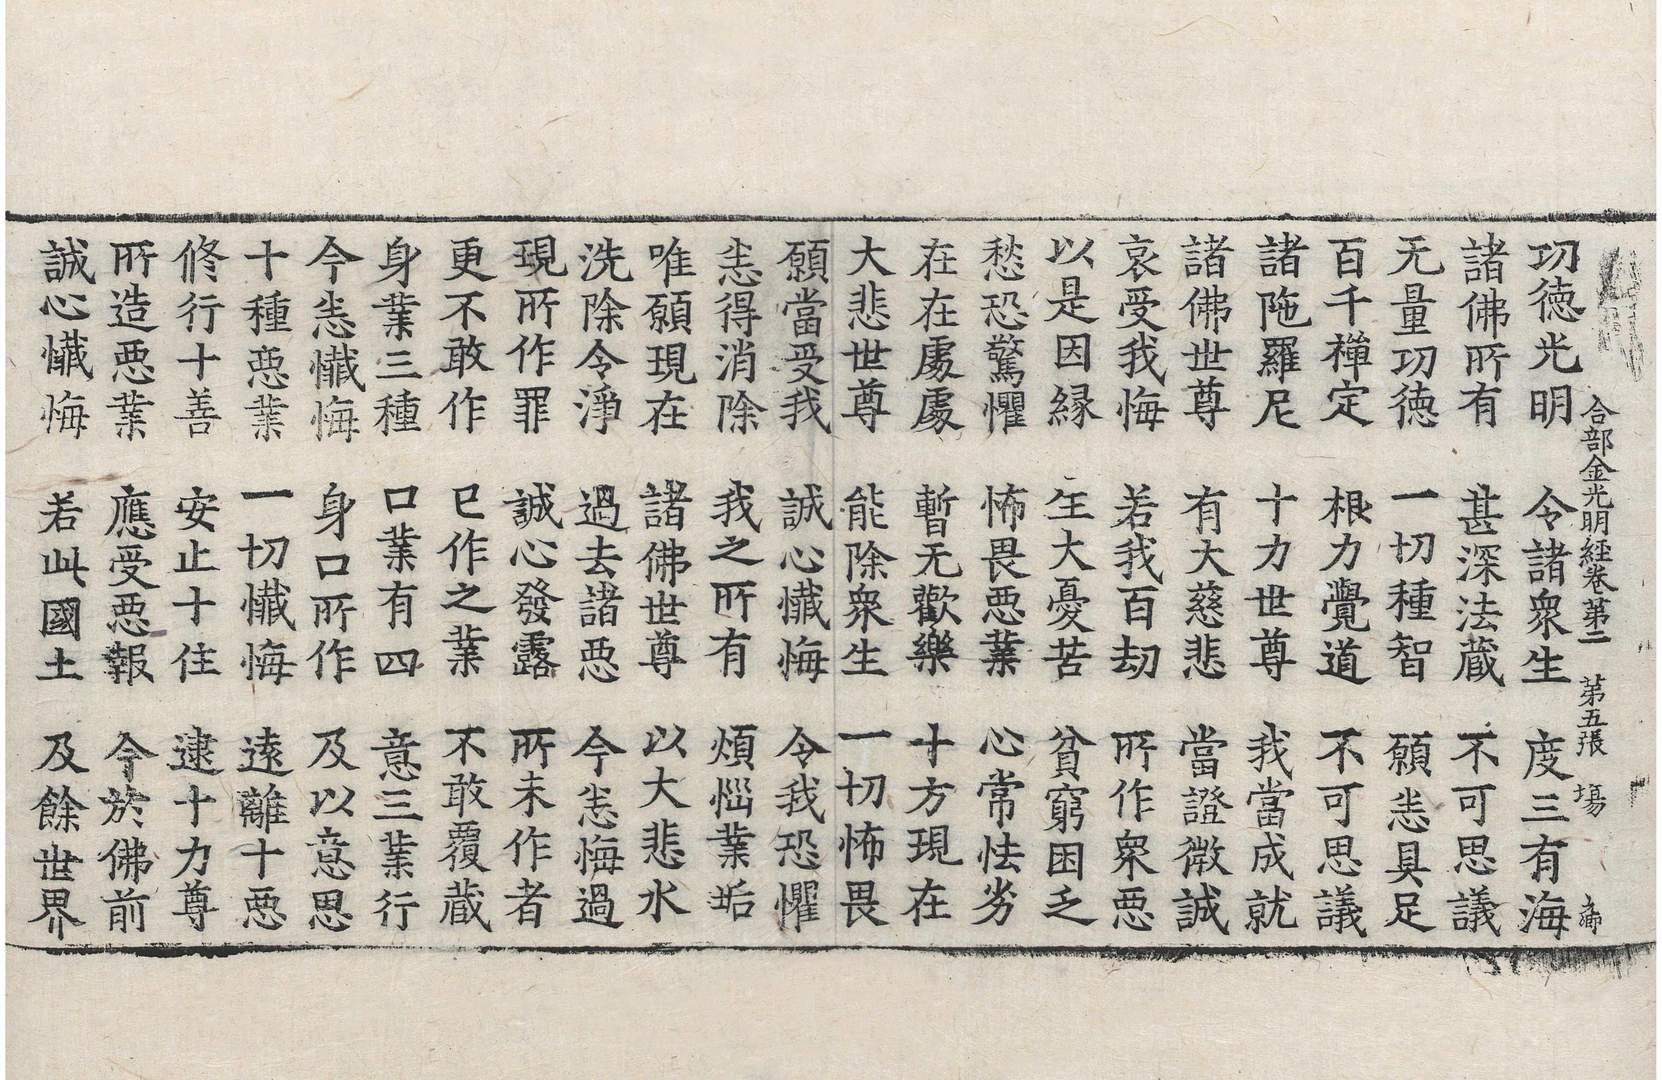 合部金光明經卷第二 第五張 場
功德光明 令諸衆生 度三有海
諸佛所有 甚深法藏 不可思議
无量功德 一切種智 願悉具足
百千禪定 根力覺道 不可思議
諸陁羅尼 十力世尊 我當成就
諸佛世尊 有大慈悲 當證微誠
哀受我悔 若我百劫 所作衆惡
以是因緣 生大憂苦 貧窮困乏
愁恐驚懼 怖畏惡業 心常怯劣
在在處處 暫无歡樂 十方現在
大悲世尊 能除衆生 一切怖畏
願當受我 誠心懺悔 令我恐懼
悉得消除 我之所有 煩惱業垢
唯願現在 諸佛世尊 以大悲水
洗除令淨 過去諸惡 今悉悔過
現所作罪 誠心發露 所未作者
更不敢作 已作之業 不敢覆藏
身業三種 口業有四 意三業行
今悉懺悔 身口所作 及以意思
十種惡業 一切懺悔 遠離十惡
修行十善 安止十住 逮十力尊
所造惡業 應受惡報 今於佛前
誠心懺悔 若此國土 及餘世界